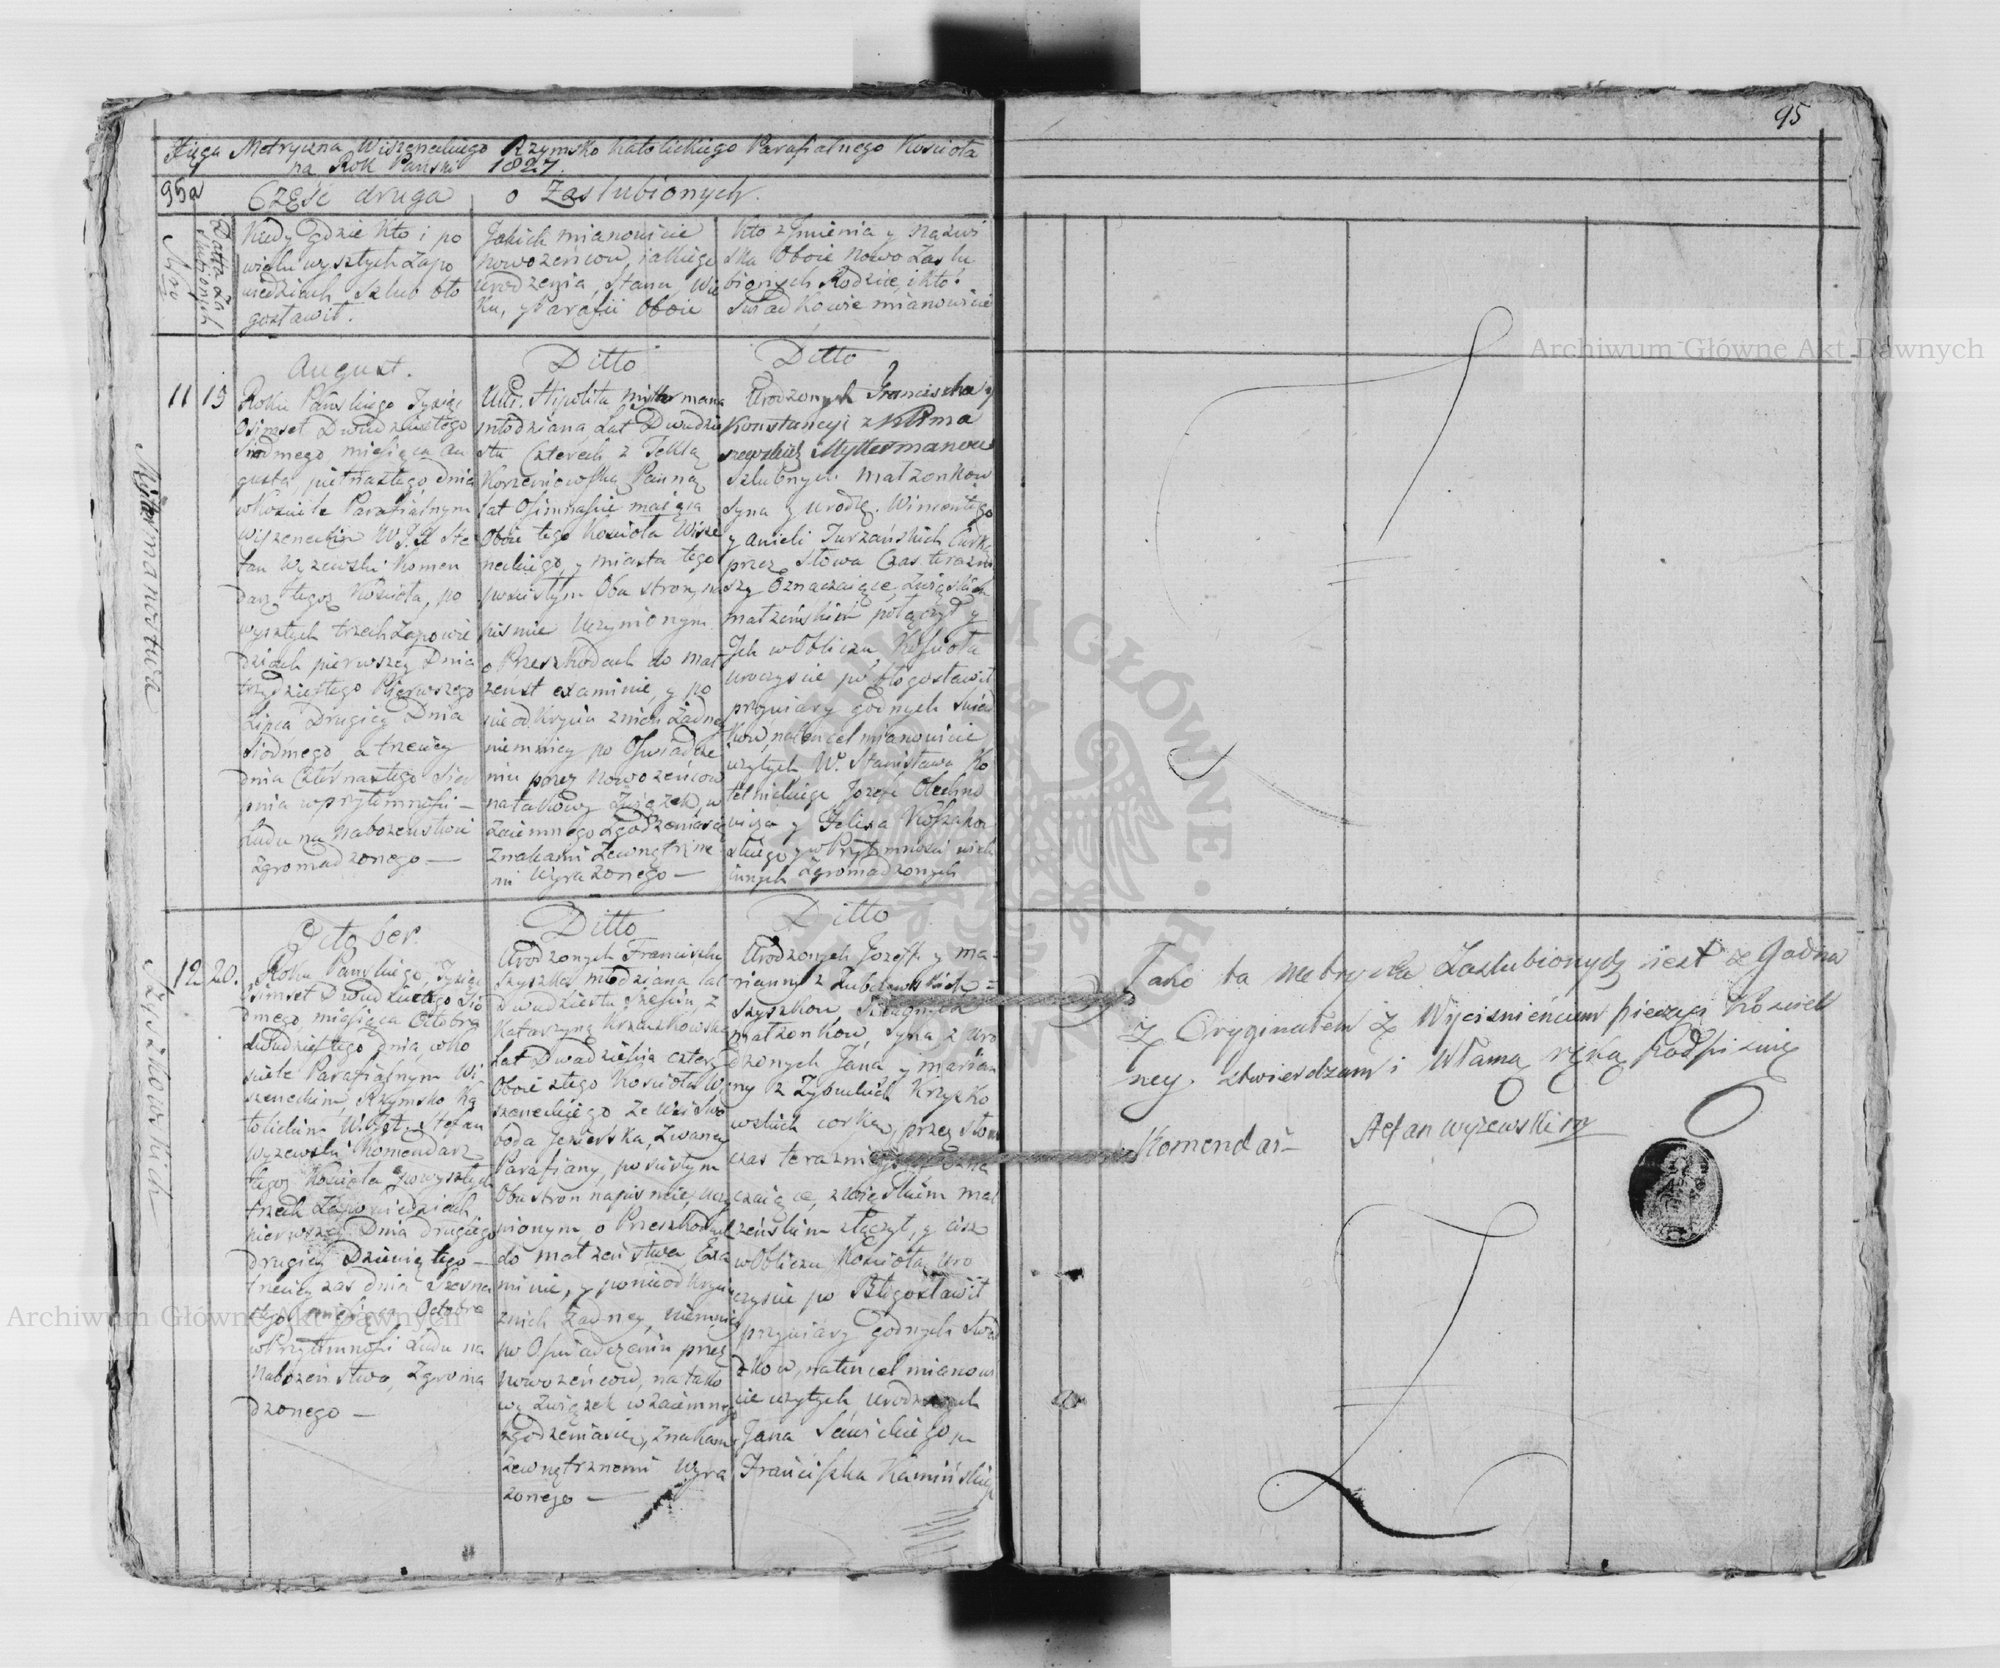 95
Xięga Metryczna Wiszenckiego Rzymsko Katolickiego Parafialnego Kościoła
na Rok Pański 1827.
95a
Część druga o Zaslubionych.
Datta Za
slubionych
Kiedy gdzie kto i po
wielu wyszłych Zapo
wiedziach szlub bło
gosławił.
Jakich mianowicie
Nowożeńców, iakiego
urodzenia, Stanu, Wie
ku, y Parafii Oboie
Kto z Imienia y nazwi
ska Oboie nowo Zaslu
bionych Rodzice, i kto
Swiadkowie mianowicie
Mytermanowa
11 15
August.
Roku Pańskiego Tysiąc
Osimset Dwudziestego
Siodmego miesiąca Au
gusta, piętnastego dnia
w Kościele Parafialnym
Wiszenckim W. J. X Ste
fan Wyżewski Komen
darz tegoż Kościoła, po
wyszłych trzech Zapowie
dziach pierwszey Dnia
trzydziestego Pierwszego
Lipca Drugiey Dnia
Siodmego a trzeciey
dnia Czternastego Sier
pnia w przytomnosci
Ludu na nabożenstwo
Zgromadzonego —
Ditto
Hipolita Mytermana
młodziana Lat Dwudzie
stu Czterech z Teklą
Korzeniowską Panną
lat Osimnascie maiącą
Oboie tego Kościoła Wisze
nckiego, y miasta tego
po scisłym Obu stron, na
pismie Uczynionym
o Przeszkodach do mał
żeńst examinie, y po
nie odkryciu z nich Żadney
niemniey po Oswiadcze
niu przez Nowożeńców
na takowy Związek, w
Zaiemnego Zgodzenia się
Znakami Zewnętrzne
mi Wyrażonego —
Ditto
Urodzonych Franciszka y
Konstancyi z Klima
szewskich Myttermanow
szlubnych małzonkow
Syna y urodz. Wincentego
y Anieli Jurzańskich Curkę
przez słowa Czas terazni
szy Oznaczaiące Związkiem
małżeńskim połączył y
Ich w Obliczu Kościoła
uroczyscie pobłogosławił
przy wiary godnych Swiad
kow, natencel mianowicie
użytych W. Stanisława Ko
telnickiego Jozefa Olechno
wicza y Felixa Kossakow
skiego y w Przytomnosci wielu
innych Zgromadzonych
12 20.
October.
Roku Pańskiego, Tysiąc
Osimset Dwudziestego Sio
dmego, miesiąca Octobra
dwudziestego dnia, w Ko
sciele Parafialnym Wi
szenckim Rzymsko Ka
tolickim, W. J. X. Stefan
Wyżewski Komendarz
tegoż Kościoła po wyszłych
trzech Zapowiedziach
pierwszey Dnia drugiego
drugiey Dziewiątego —
trzeciey zas dnia Szesna
stego miesiąca Octobra
w Przytomnosci Ludu na
Nabożeństwo, Zgroma
dzonego —
Ditto
Urodzonych Franciszka
Szyszka młodziana lat
Dwudziestu Szesciu z
Katarzyną Krzeczkowską
Lat Dwadziescia cztery
Oboie z tego Kościoła Wi
szenckiego Ze Wsi Swo
boda Zwaney
Parafiany, po scisłym
Obu stron na pismie, ucz
nionym o Przeszkodach
do małżeństwa Exa
minie, y po nie odkryciu
z nich Żadney, niemniey
po Oswiadczeniu przez
Nowożeńców, na tako
wy Związek wzaiemnego
zgodzenia się, Znakami
Zewnętrznemi Wyra
żonego —
Ditto
Urodzonych Jozeffa y Ma-
rianny z
Szyszkow Szlubnych
małzonkow, Syna z Uro
dzonych Jana y Marian
ny z Krzyszko
wskich corką, przez słowa
czas terazniejszy Ozna
czaiące, związkiem mał
żeńskim złączył, y ich
w Obliczu Kościoła, Uro
czyscie po Błogosławił
przy wiary godnych Swiad
kow, natencel mianowi
cie użytych urodzonych
Jana Sawickiego y
Franciszka Kamińskiego
Jako ta metryka Zaslubionych iest zgodna
z Oryginałem z Wycisnieniem pieczęci Kosciel
ney stwierdzam i Własną ręką Podpisuię
Komendarz Stefan Wyżewski
Archiwum Główne Akt Dawnych
Archiwum Główne Akt Dawnych